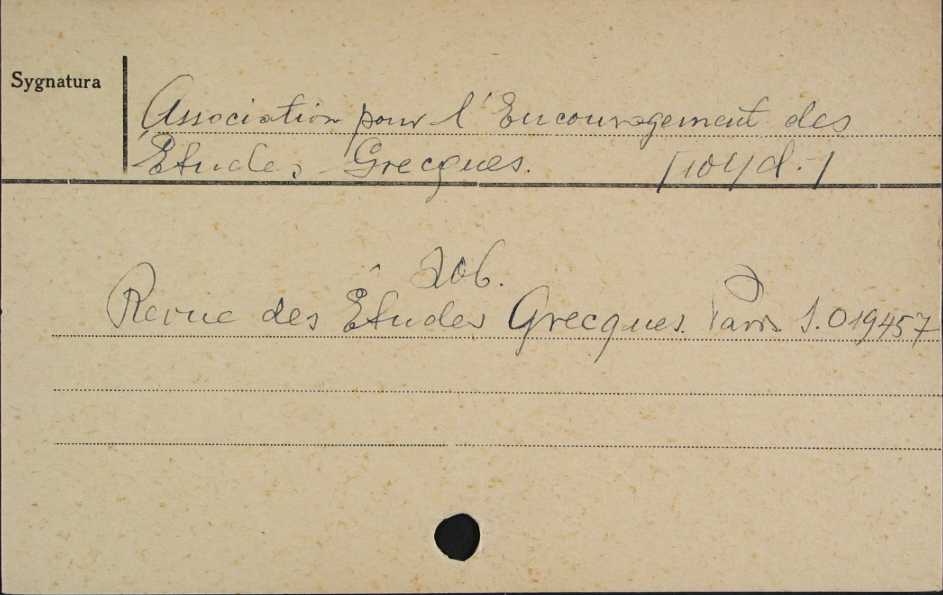 Sygnatura
Association pour l'Encouragement des
Études Grecques. [wyd.]
zob.
Revue des Études Grecques. Paris S. 019457